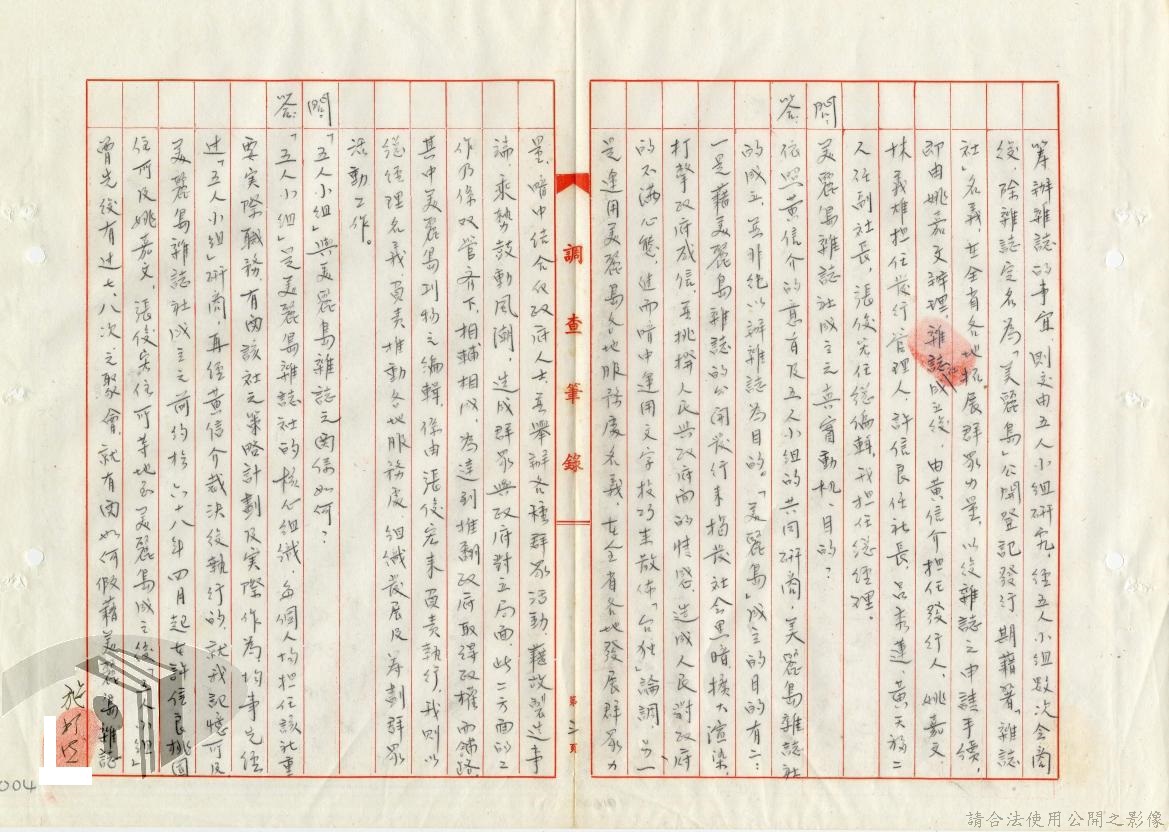 籌辦雜誌的事宜,則交由五人小組研究,經五人小組數次會商
後,除雜誌定名為「美麗島」公開登記發行,期藉著「雜誌
社」名義,在全省各地拓展群眾力量,以後雜誌之申請手續,
即由姚嘉文辦理,雜誌成立後,由黃信介担任發行人,姚嘉文、
林義雄担任發行管理人,許信良任社長,呂秀蓮、黃天福二
人任副社長,張俊宏任總編輯,我担任總經理。
問:美麗島雜誌社成立之真實動机、目的?
答:依照黃信介的意旨及五人小組的共同研商,美麗島雜誌社
的成立,並非純以辦雜誌為目的。「美麗島」成立的目的有二:
一是藉美麗島雜誌的公開發行來揭發社會黑暗,擴大渲染,
打擊政府威信,並挑撥人民與政府間的情感,造成人民對政府
的不滿心態,進而暗中運用文字技巧來散佈「台獨」論調,另一
是運用美麗島各地服務處名義,在全省各地發展群眾力
調查筆錄
第三頁
量,暗中結合反政府人士,並舉辦各種群眾活動,藉故製造事
端,乘勢鼓動風潮,造成群眾與政府對立局面,此二方面的工
作乃係双管齊下,相輔相成,為達到推翻政府取得政權而鋪路,
其中美麗島刊物之編輯,係由張俊宏來負責執行,我則以
總經理名義,負責推動各地服務處組織發展及籌劃群眾
活動工作。
問:「五人小組」與美麗島雜誌之關係如何?
答:「五人小組」是美麗島雜誌社的核心組織,每個人均担任該社重
要實際職務,有關該社之策略計劃及實際作為,均事先經
過「五人小組」研商,再經黃信介裁決後執行的,就我記憶所及,
美麗島雜誌社成立之前約於六十八年四月起在許信良桃園
住所及姚嘉文、張俊宏住所等地至美麗島成立後「五人小組」
曾先後有過七、八次之聚會,就有關如何假藉美麗島雜誌
施明德
004
請合法使用公開之影像